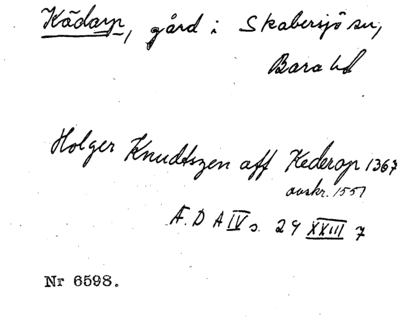 Kādarp, gård i Skabersjö sn,
Bara hd
Holger Knudtszen aff Kederop 1367
avskr. 1551
Æ. D A IV s. 29 XXIII 7
Nr 6598.